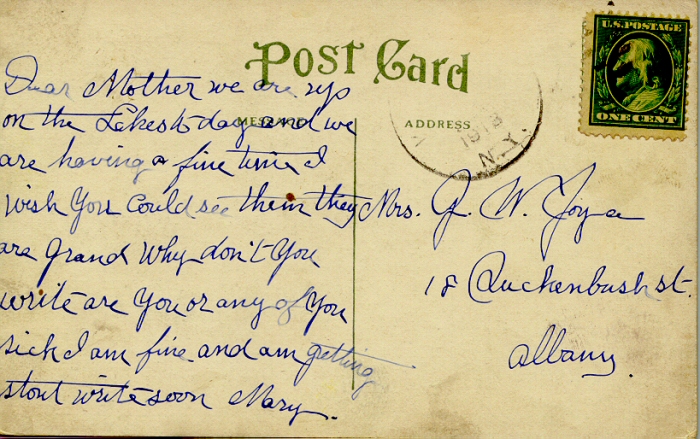 Post Card
MESSAGE
ADDRESS
U.S. POSTAGE
ONE CENT
19
N.Y.
Dear Mother we are up
on the Lakes to day and we
are having a fine time I
wish You Could see them they
are grand Why don't You
write are You or any of You
sick I am fine and am getting
stout write soon Mary.
Mrs. J. W.
18 Quckenbush st.
Albany.